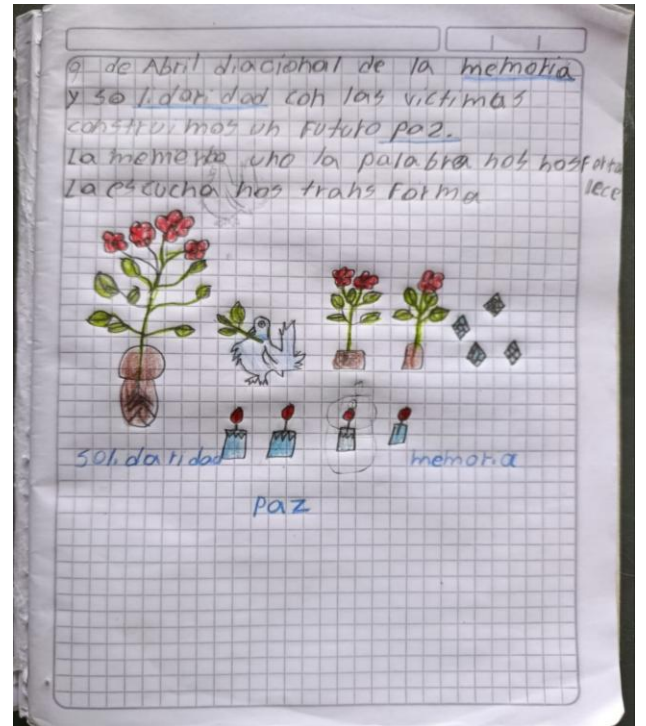 9 de Abril diacional de la memoria
y solidaridad con las victimas
construimos un futuro paz.
La memoria uno la palabra nos nosfortalece
La escucha nos transforma
solidaridad memoria
paz